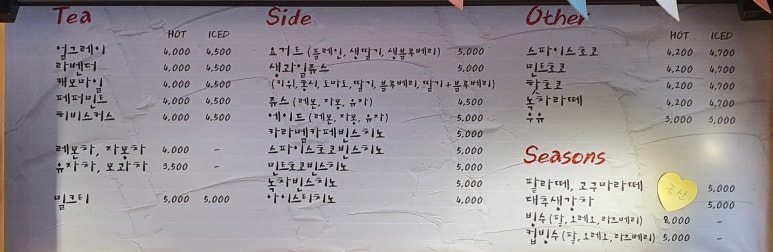 Tea
HOT ICED
얼그레이 4,000 4,500
라벤더 4,000 4,500
캐모마일 4,000 4,500
페퍼민트 4,000 4,500
히비스커스 4,000 4,500
레몬차, 자몽차 4,000 -
유자차, 모과차 3,500 -
밀크티 5,000 5,000
Side
요거트 (플레인, 생딸기, 생블루베리) 5,000
생과일쥬스 5,000
(키위, 홍시, 토마토, 딸기, 블루베리, 딸기+블루베리)
쥬스 (레몬, 자몽, 유자) 4,500
에이드 (레몬, 자몽, 유자) 5,000
카라멜카페빈스치노 5,000
스파이스초코빈스치노 5,000
민트초코빈스치노 5,000
녹차빈스치노 5,000
아이스티치노 4,000
Other
HOT ICED
스파이스초코 4,200 4,700
민트초코 4,200 4,700
핫초코 4,200 4,700
녹차라떼 4,200 4,700
우유 3,000 3,000
Seasons
팥라떼, 고구마라떼 5,000
대추생강차 5,000
빙수 (팥, 오레오, 라즈베리) 8,000 -
컵빙수 (팥, 오레오, 라즈베리) 5,000 -